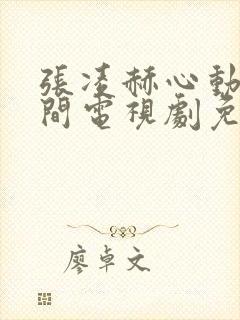 張凌赫心動
間電視劇免
廖卓文